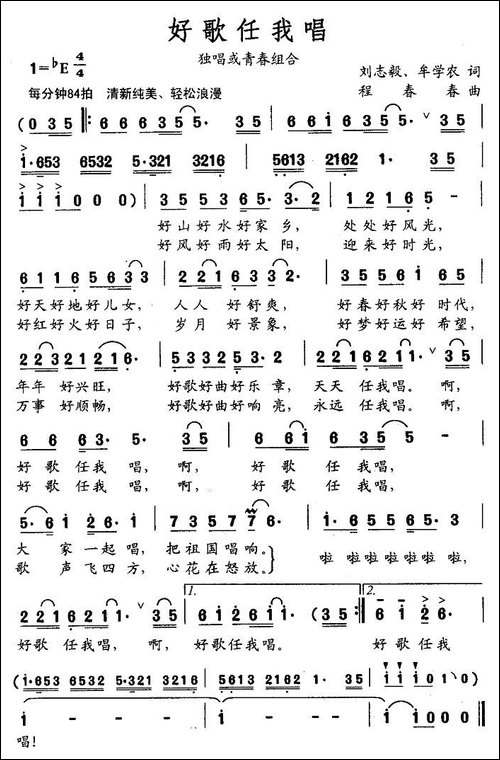 好歌任我唱
独唱或青春组合
1=♭E 4/4
刘志毅、牟学农 词
每分钟84拍 清新纯美、轻松浪漫
程春春 曲
(0 3 5 ‖: 6 6 6 3 5 5· 3 5 | 6 6 i 6 3 5· ∨ 2 3 |
i·653 6532 5·321 3216 | 5613 2162 1· 3 5 |
i i i 0 0 0) | 3 5 5 3 5 6 5· 3·2 | 1 2 1 6 5 - |
好山好水好家乡， 处处好风光，
好风好雨好太阳， 迎来好时光，
6 1 1 6 5 6 3 3 | 2 2 1 6 3 2 2· | 3 5 5 6 1 6 5 |
好天好地好儿女， 人人 好舒爽， 好春好秋好时代，
好红好火好日子， 岁月 好景象， 好梦好运好希望，
2 2 3 2 1 2 1 6· | 5 3 3 2 3 5 5 | 2 2 1 6 2 1 1· ∨ 3 5 |
年年 好兴旺， 好歌好曲好乐章， 天天 任我唱。啊，
万事 好顺畅， 好歌好曲好响亮， 永远 任我唱。啊，
6 6 6 3· 5· 3 5 | 6 6 i 6 - | 5 - - |
好歌任我唱， 啊， 好歌任我唱，
好歌任我唱， 啊， 好歌任我唱，
5· 6 i 2 6· i | 7 3 5 7 7 6 6 | 5 5· 5 5· 5 3 |
大家一起唱， 把祖国唱响。
啦啦啦啦啦啦，
歌声飞四方， 心花在怒放。
2 2 1 6 2 1 1· ∨ 3 5 | 1. 6 i 2 6 i i· (3 5 :‖ 2. 6 i 2 6· |
好歌任我唱， 啊， 好歌任我唱。 好歌任我
(i·653 6532 5·321 3216 | 5613 2162 1· 3 5 | i i i 0 1 \ 0) |
i - - - | i - - - | i i 0 0 0 ‖
唱！